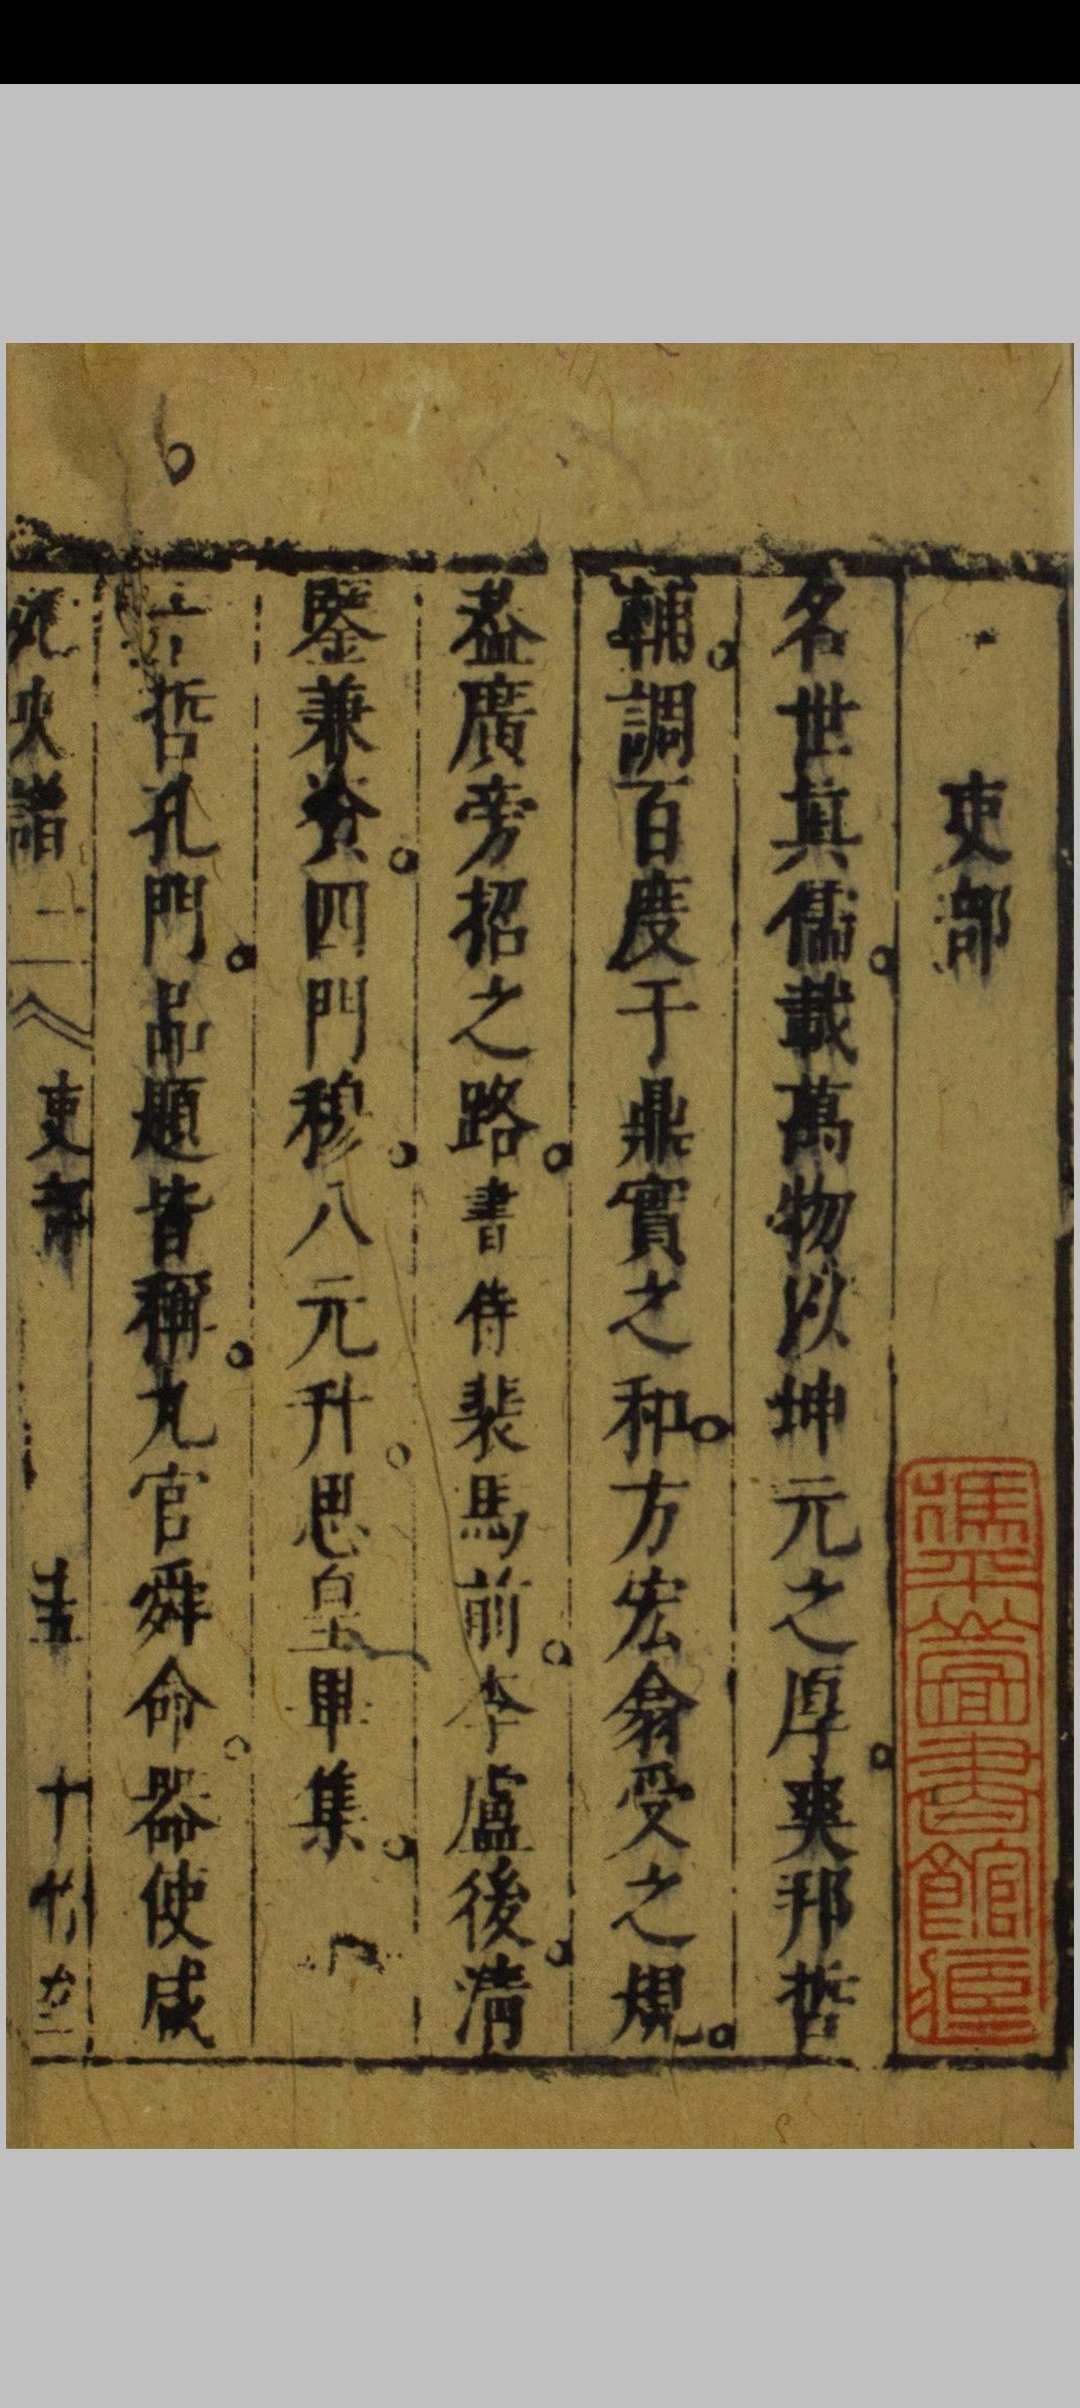 吏部
名世真儒載萬物以坤元之厚爽邦哲
輔調百度于鼎實之和方宏翕受之規
益廣旁招之路書侍裴馬前李盧後清
鑒兼資四門穆八元升思皇畢集
十哲孔門品題皆稱九官舜命器使咸
吏部
十竹